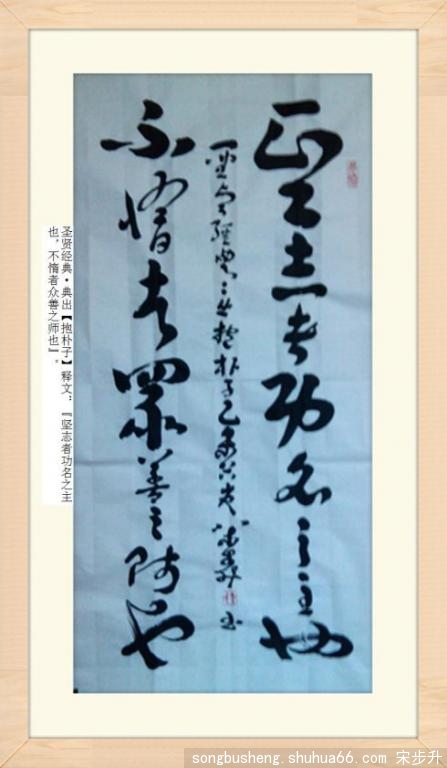 坚志者功名之主也
圣贤经典之出抱朴子
不惰者众善之师也
圣贤经典·典出【抱朴子】释文：『坚志者功名之主
也，不惰者众善之师也』。
songbusheng.shuhua66.com 宋步升